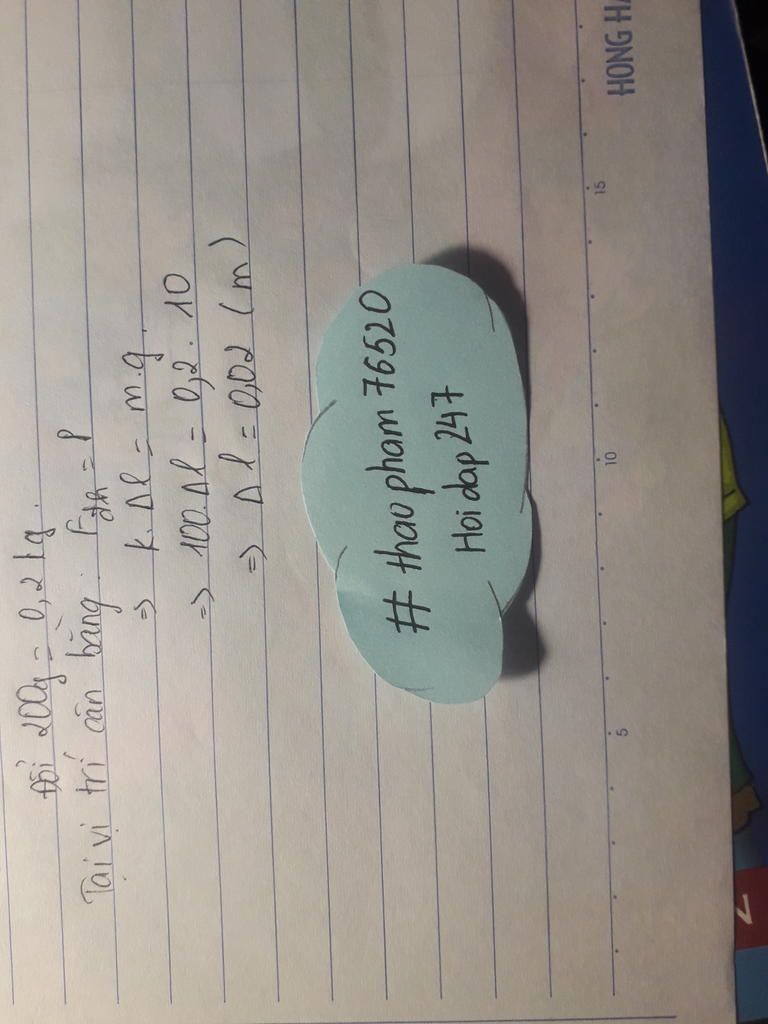 Đổi 200g = 0,2 kg.
Tại vị trí cân bằng: Fđh = P
=> k.Δl = m.g
=> 100.Δl = 0,2.10
=> Δl = 0,02 (m)
# thaopham 76520
Hoidap247
5
10
15
HONG HA